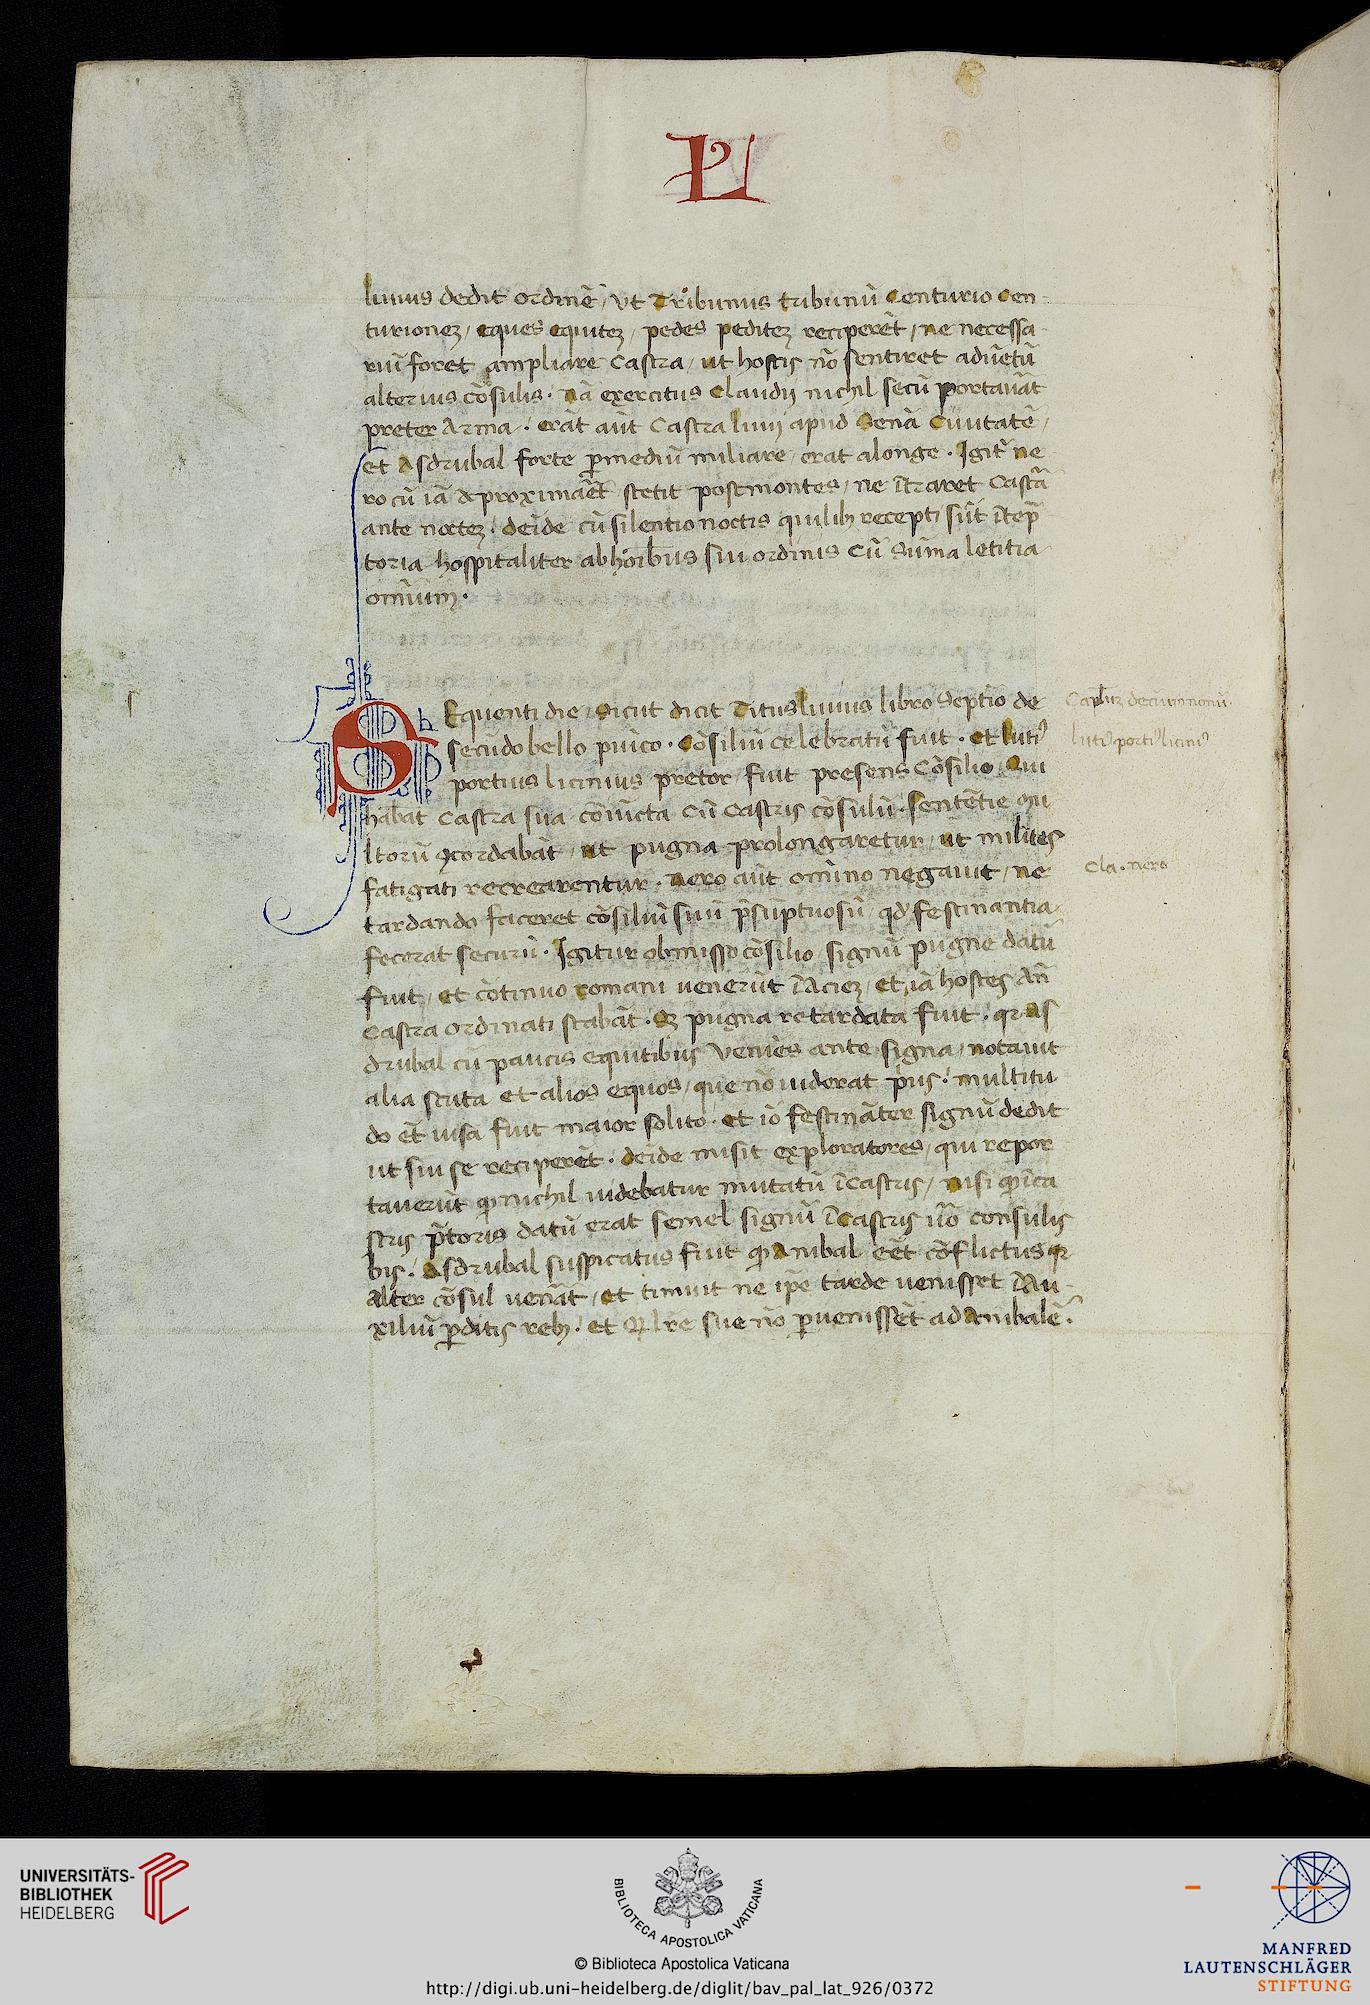 PL
liuius dedit ordinē, vt Tribunus tribunū Centurio Cen
turioneȝ, eques equiteȝ, pedes pediteȝ reciperēt, ne necessa
riū foret ampliare Castra, ut hostis nō sentiret aduētū
alterius cōsulis. Nā exercitus Claudij nichil secū portauāt
preter Arma. erāt aūt Castra liuij apud Senā Ciuitatē,
et Asdrubal forte ꝑmediū miliare erat alonge. Igit᷑ ne
ro cū iā stetit post montes, ne ītraret Castrā
ante nocteȝ. deīde cū silentio noctis recepti sūt ītēp
toria hospitaliter ab hōibus sui ordinis Cū Sūma letitia
omīuꝫ.
SEquenti die, Sicut dicit Titus liuius libro Septīo de
secūdo bello pūico. Cōsiliū celebratū fuit. et lutiꝰ
portius licinius pretor, fuit presens Cōsilio, Qui
habāt Castra sua cōiūcta Cū Castris cōsulū. Sentētie mu
ltorū ꝯcordabāt, ut pugna prolongaretur, ut milites
fatigati recrearentur. Nero aūt omīno negauit, ne
tardando faceret cōsiliū suū p̄sūptuosū, qd̓ festinantia
fecerat securū. Igitur obmisso cōsilio, signū pugne datū
fuit, et cōtinuo romani uenerūt īAcieȝ, et iā hostes Añ
Castra ordinati stabāt. Sȝ pugna retardata fuit. qr As
drubal cū paucis equitibus veniēs ante signa, notauit
alia scuta et alios equos, que nō uiderat p̓us. multitu
do ēt uisa fuit maior solito. et iō festināter signū dedit
ut sui se reciperēt. deīde misit exploratores, qui repor
tauerūt ꝙ nichil uidebatur mutatū īCastris, nisi ꝙ īca
stris p̄toris datū erat semel signū īCastris u̓o consulis
bis. Asdrubal suspicatus fuit ꝙ Anibal eēt cōflictus qr
Alter cōsul uenāt, et timuit ne ip̄e tarde uenisset īAu
xiliū ꝑditis rebꝫ. et ꝙ l̄re sue nō ꝑuenissēt ad Anibalē.
Capl̄uȝ decimuꝫnonū.
lutiꝰ portiꝰ liciniꝰ
Cla. nero
UNIVERSITÄTS-
BIBLIOTHEK
HEIDELBERG
BIBLIOTECA APOSTOLICA VATICANA
© Biblioteca Apostolica Vaticana
http://digi.ub.uni-heidelberg.de/diglit/bav_pal_lat_926/0372
MANFRED
LAUTENSCHLÄGER
STIFTUNG